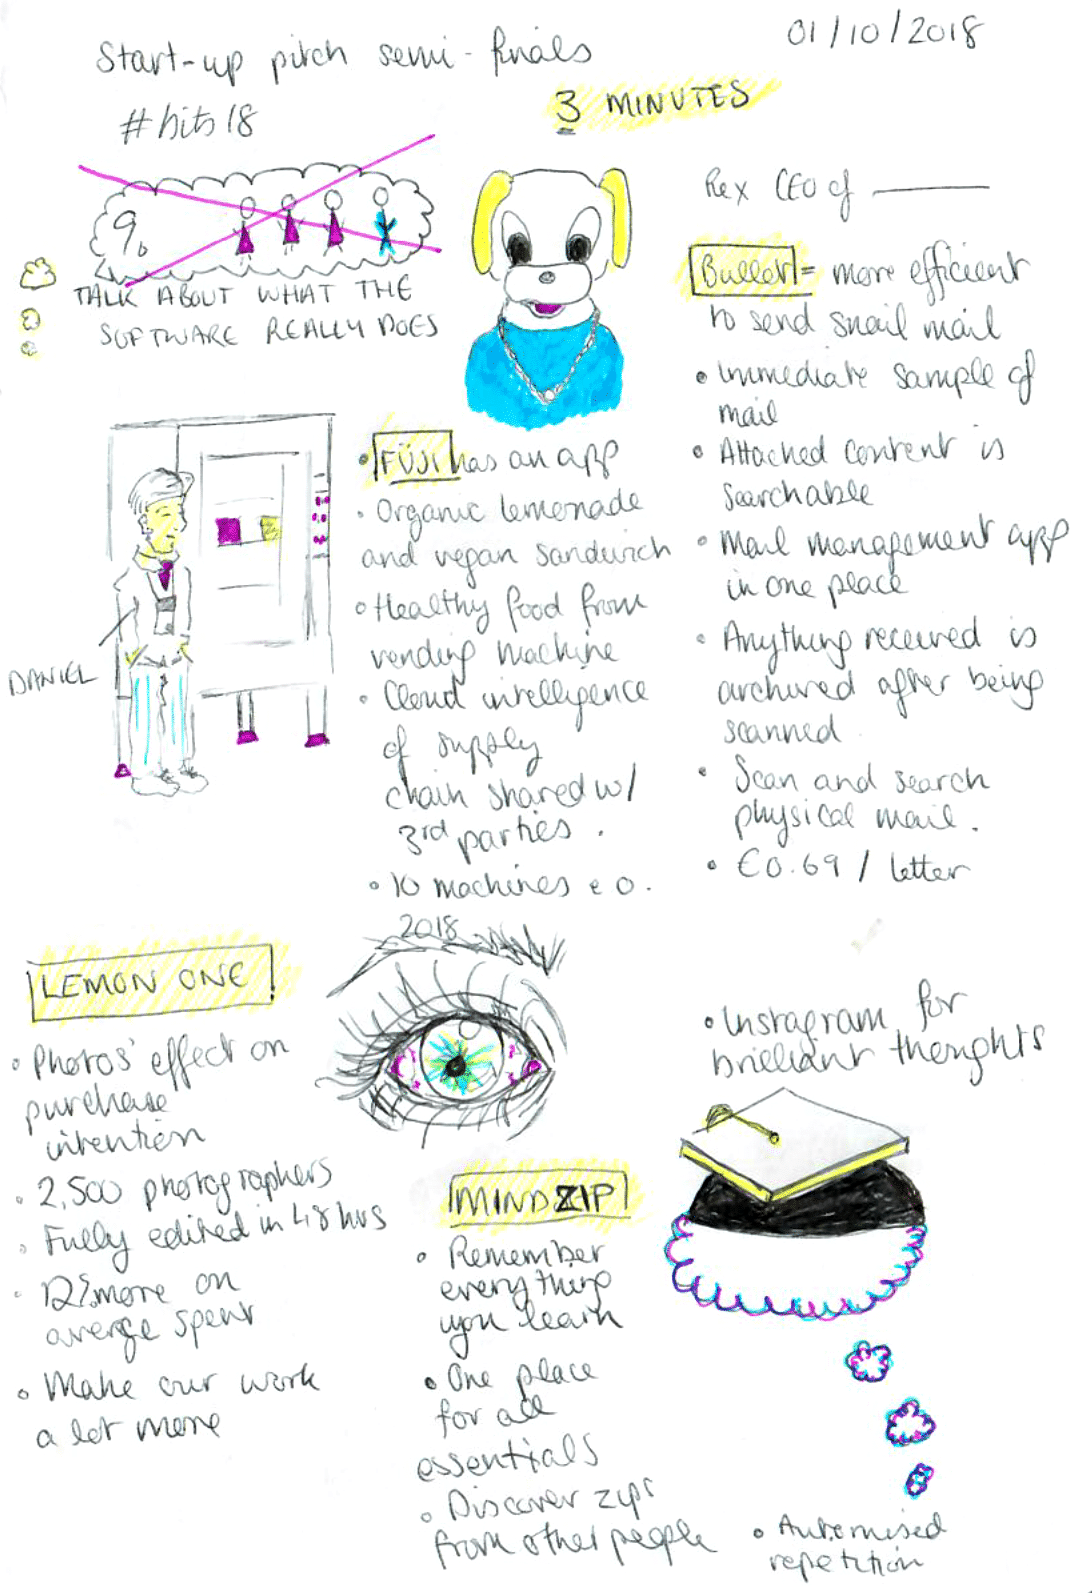 Start-up pitch semi-finals
01/10/2018
#hits18
3 MINUTES
TALK ABOUT WHAT THE
SOFTWARE REALLY DOES
Rex CEO of
= more efficient
to send snail mail
• Immediate sample of
mail
• Attached content is
searchable
• Mail management app
in one place
• Anything received is
archived after being
scanned
• Scan and search
physical mail.
• €0.69 / letter
DANIEL
• FÜJI has an app
• Organic lemonade
and vegan sandwich
• Healthy food from
vending machine
• Cloud intelligence
of supply
chain shared w/
3rd parties.
• 10 machines e o.
2018
LEMON ONE
• Photos' effect on
purchase
intention
• 2,500 photographers
• Fully edited in 48 hrs
• 12% more on
average spent
• Make our work
a lot more
MINDZIP
• Remember
everything
you learn
• One place
for all
essentials
• Discover zips
from other people
• Instagram for
brilliant thoughts
• Automised
repetition